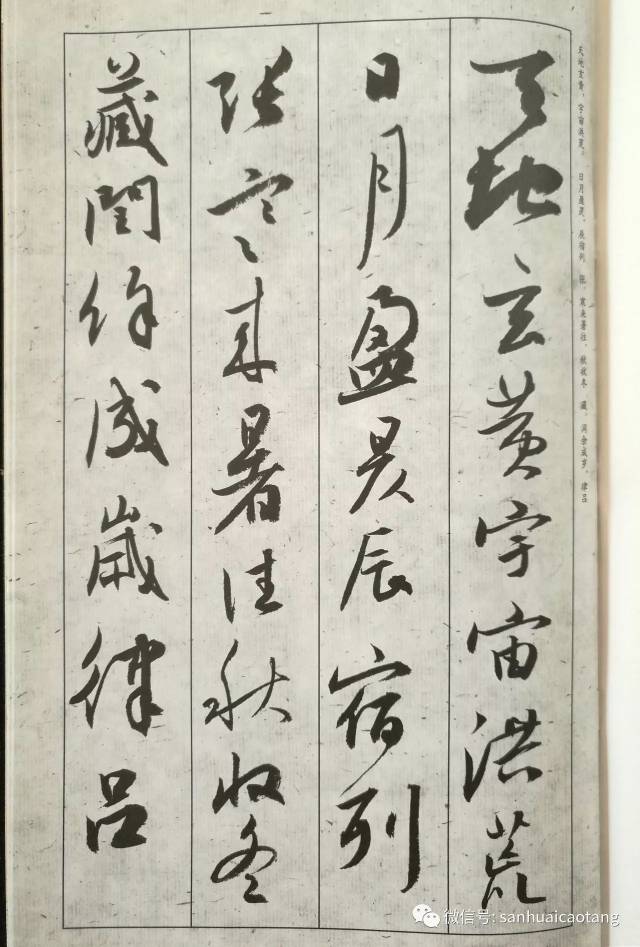 天地玄黄宇宙洪荒
日月盈昃辰宿列
张寒来暑往秋收冬
藏闰余成岁律吕
天地玄黄，宇宙洪荒。日月盈昃，辰宿列 张，寒来暑往，秋收冬 藏，闰余成岁，律吕
微信号: sanhuaicaotang